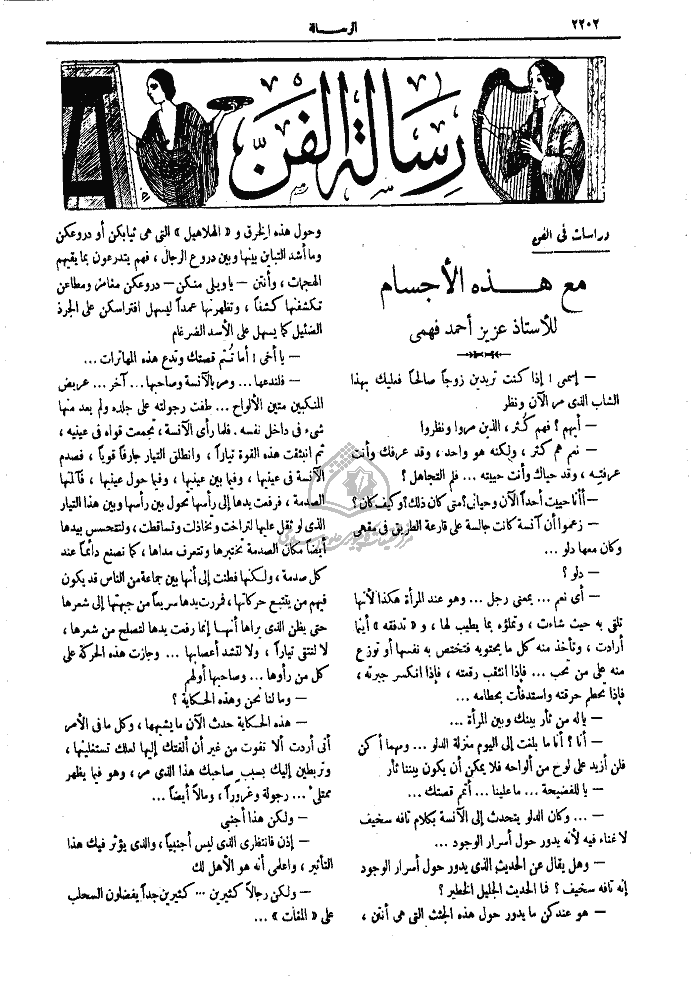 ٢٢٠٢
الرسالة
رسالة الفن
دراسات في الفن
مع هذه الأجسام
للأستاذ عزيز أحمد فهمي
— إسمى ! إذا كنت تريدين زوجاً صالحاً فعليك بهذا
الشاب الذى مر الآن ونظر
— أيهم ؟ فهم كُثر ، الذين مروا ونظروا
— نعم هم كثر ، ولكنه هو واحد ، وقد عرفك وأنت
عرفتيه ، وقد حياك وأنت حييته ... فلم التجاهل ؟
— أأنا حييت أحداً الآن وحيانى؟ متى كان ذلك؟ وكيف كان؟
— زعموا أن آنسة كانت جالسة على قارعة الطريق فى مقهى
وكان معها دلو ...
— دلو ؟
— أى نعم ... بمعنى رجل ... وهو عند المرأة هكذا لأنها
تلقى به حيث شاءت ، وتملؤه بما يطيب لها ، و « تدفقه » أينما
أرادت ، وتأخذ منه كل ما يحتويه فتختص به نفسها أو توزع
منه على من تحب ... فإذا انثقب رقعته ، فإذا انكسر جبرته ،
فإذا تحطم حرقته واستدفأت بحطامه ...
— ياله من ثأر بينك وبين المرأة ...
— أنا ؟ أنا ما بلغت إلى اليوم منزلة الدلو ... ومهما أكن
فلن أزيد على لوح من ألواحه فلا يمكن أن يكون بيننا ثأر
— يا للفضيحة ... ما علينا ... أتمم قصتك ...
— ... وكان الدلو يتحدث إلى الآنسة بكلام تافه سخيف
لا غناء فيه لأنه يدور حول أسرار الوجود ...
— وهل يقال عن الحديث الذى يدور حول أسرار الوجود
إنه تافه سخيف ؟ فما الحديث الجليل الخطير ؟
— هو عندكن ما يدور حول هذه الجثث التى هى أنتن ،
وحول هذه الخرق و « الهلاهيل » التى هى ثيابكن أو دروعكن
وما أشد التباين بينها وبين دروع الرجال ، فهم يتدرعون بما يقيهم
الهجمات ، وأنتن — ياويلى منكن — دروعكن مغامز ومطاعن
تكشفنها كشفاً ، وتظهرنها عمداً ليسهل افتراسكن على الجرذ
الضئيل كما يسهل على الأسد الضرغام
— يا أخى ! أما تُتم قصتك وتدع هذه المهاترات ...
— فلندعها ... ومر بالآنسة وصاحبها ... آخر ... عريض
المنكبين متين الألواح ... طفت رجولته على جلده ولم يعد منها
شىء فى داخل نفسه . فلما رأى الآنسة ، تجمعت قواه فى عينيه ،
ثم انبثقت هذه القوة تياراً ، وانطلق التيار جارفاً قوياً ، فصدم
الآنسة فى عينيها ، وفيما بين عينيها ، وفيما حول عينيها ، فآلمتها
الصدمة ، فرفعت يدها إلى رأسها تحول بين رأسها وبين هذا التيار
الذى لو ثقل عليها لتراخت وتخاذلت وتساقطت ، ولتتحسس بيدها
أيضاً مكان الصدمة تختبرها وتتعرف مداها ، كما نصنع دائماً عند
كل صدمة ، ولكنها فطنت إلى أنها بين جماعة من الناس قد يكون
فيهم من يتتبع حركاتها ، فمررت يدها سريعاً من جبهتها إلى شعرها
حتى يظن الذى يراها أنها إنما رفعت يدها لتصلح من شعرها ،
لا لتتقى تياراً ، ولا لتشد أعصابها ... وجازت هذه الحركة على
كل من رأوها ... وصاحبها أولهم
— وما لنا نحن وهذه الحكاية ؟
— هذه الحكاية حدث الآن ما يشبهها ، وكل ما فى الأمر
أنى أردت ألا تفوت من غير أن ألفتك إليها لعلك تستغلينها ،
وتربطين إليك بسبب صاحبك هذا الذى مر ، وهو فيما يظهر
ممتلىء ... رجولة وغروراً ، ومالاً أيضاً ...
— ولكن هذا أجنبى
— إذن فانتظرى الذى ليس أجنبياً ، والذى يؤثر فيك هذا
التأثير ، واعلمى أنه هو الأهل لك
— ولكن رجالاً كثيرين ... كثيرين جداً يفضلون السحلب
على « المثات » ...